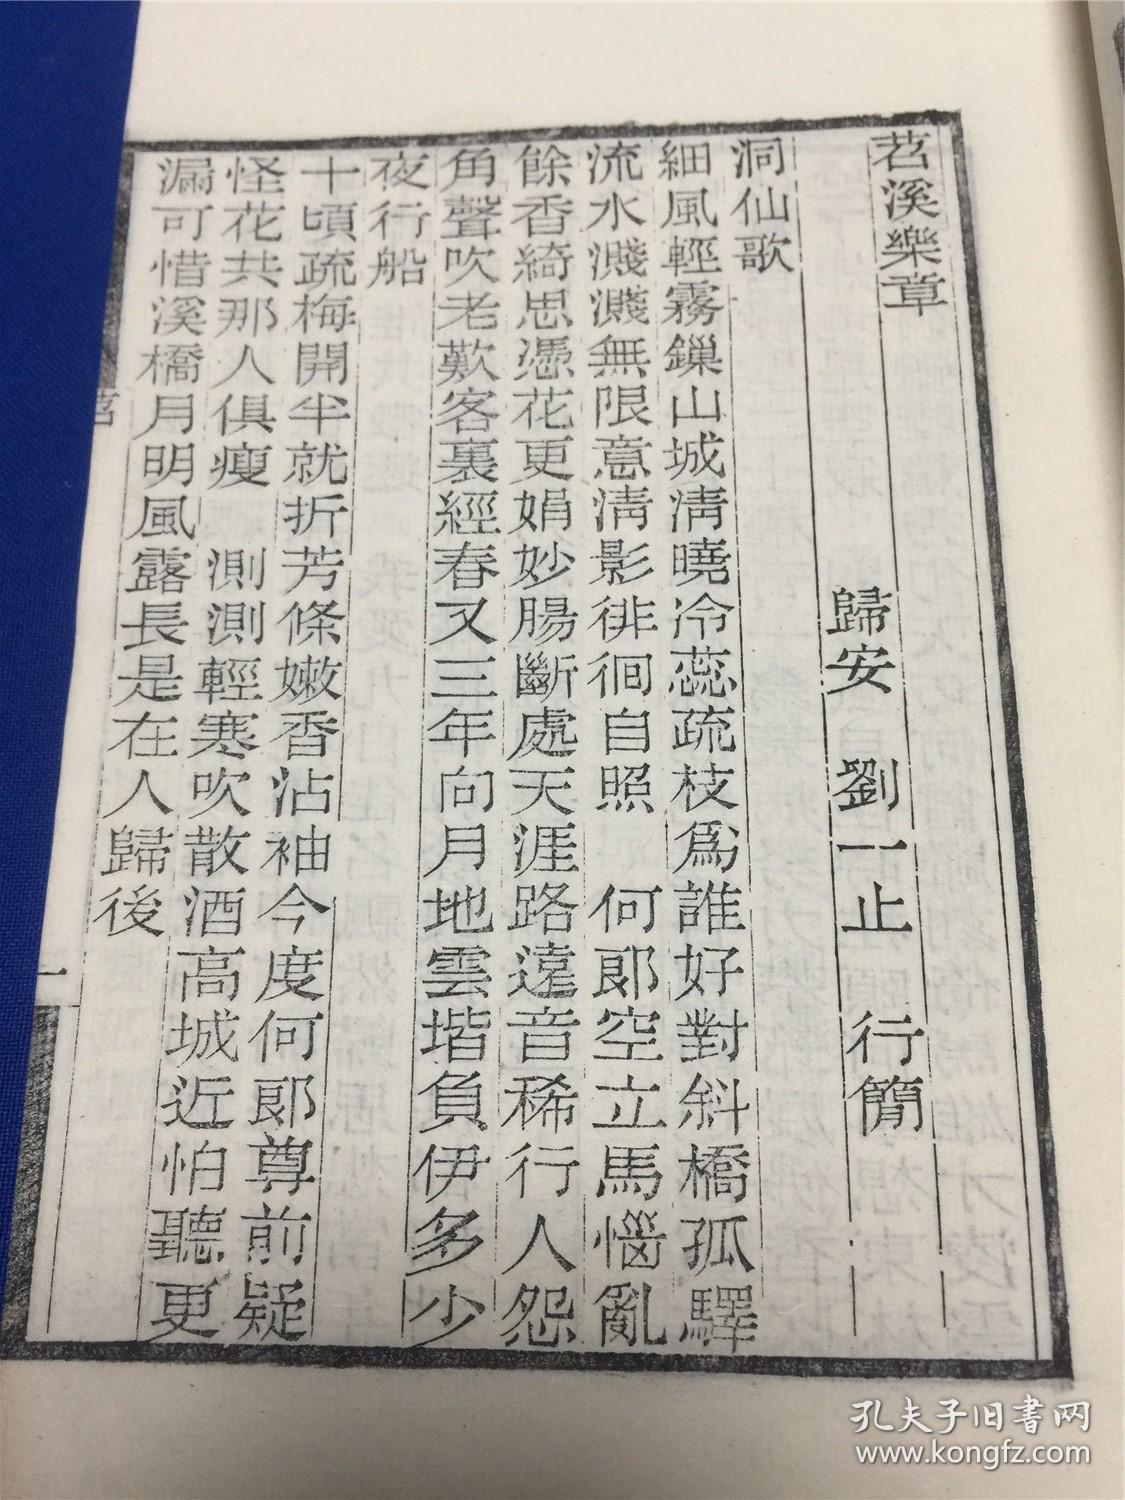 苕溪樂章
歸安 劉一止 行簡
洞仙歌
細風輕霧鏁山城淸曉冷蕊疏枝爲誰好對斜橋孤驛
流水濺濺無限意淸影徘徊自照 何郞空立馬惱亂
餘香綺思憑花更娟妙腸斷處天涯路遠音稀行人怨
角聲吹老歎客裏經春又三年向月地雲堦負伊多少
夜行船
十頃疏梅開半就折芳條嫩香沾袖今度何郞尊前疑
怪花共那人俱瘦 測測輕寒吹散酒高城近怕聽更
漏可惜溪橋月明風露長是在人歸後
苕
一
孔夫子旧书网
www.kongfz.com